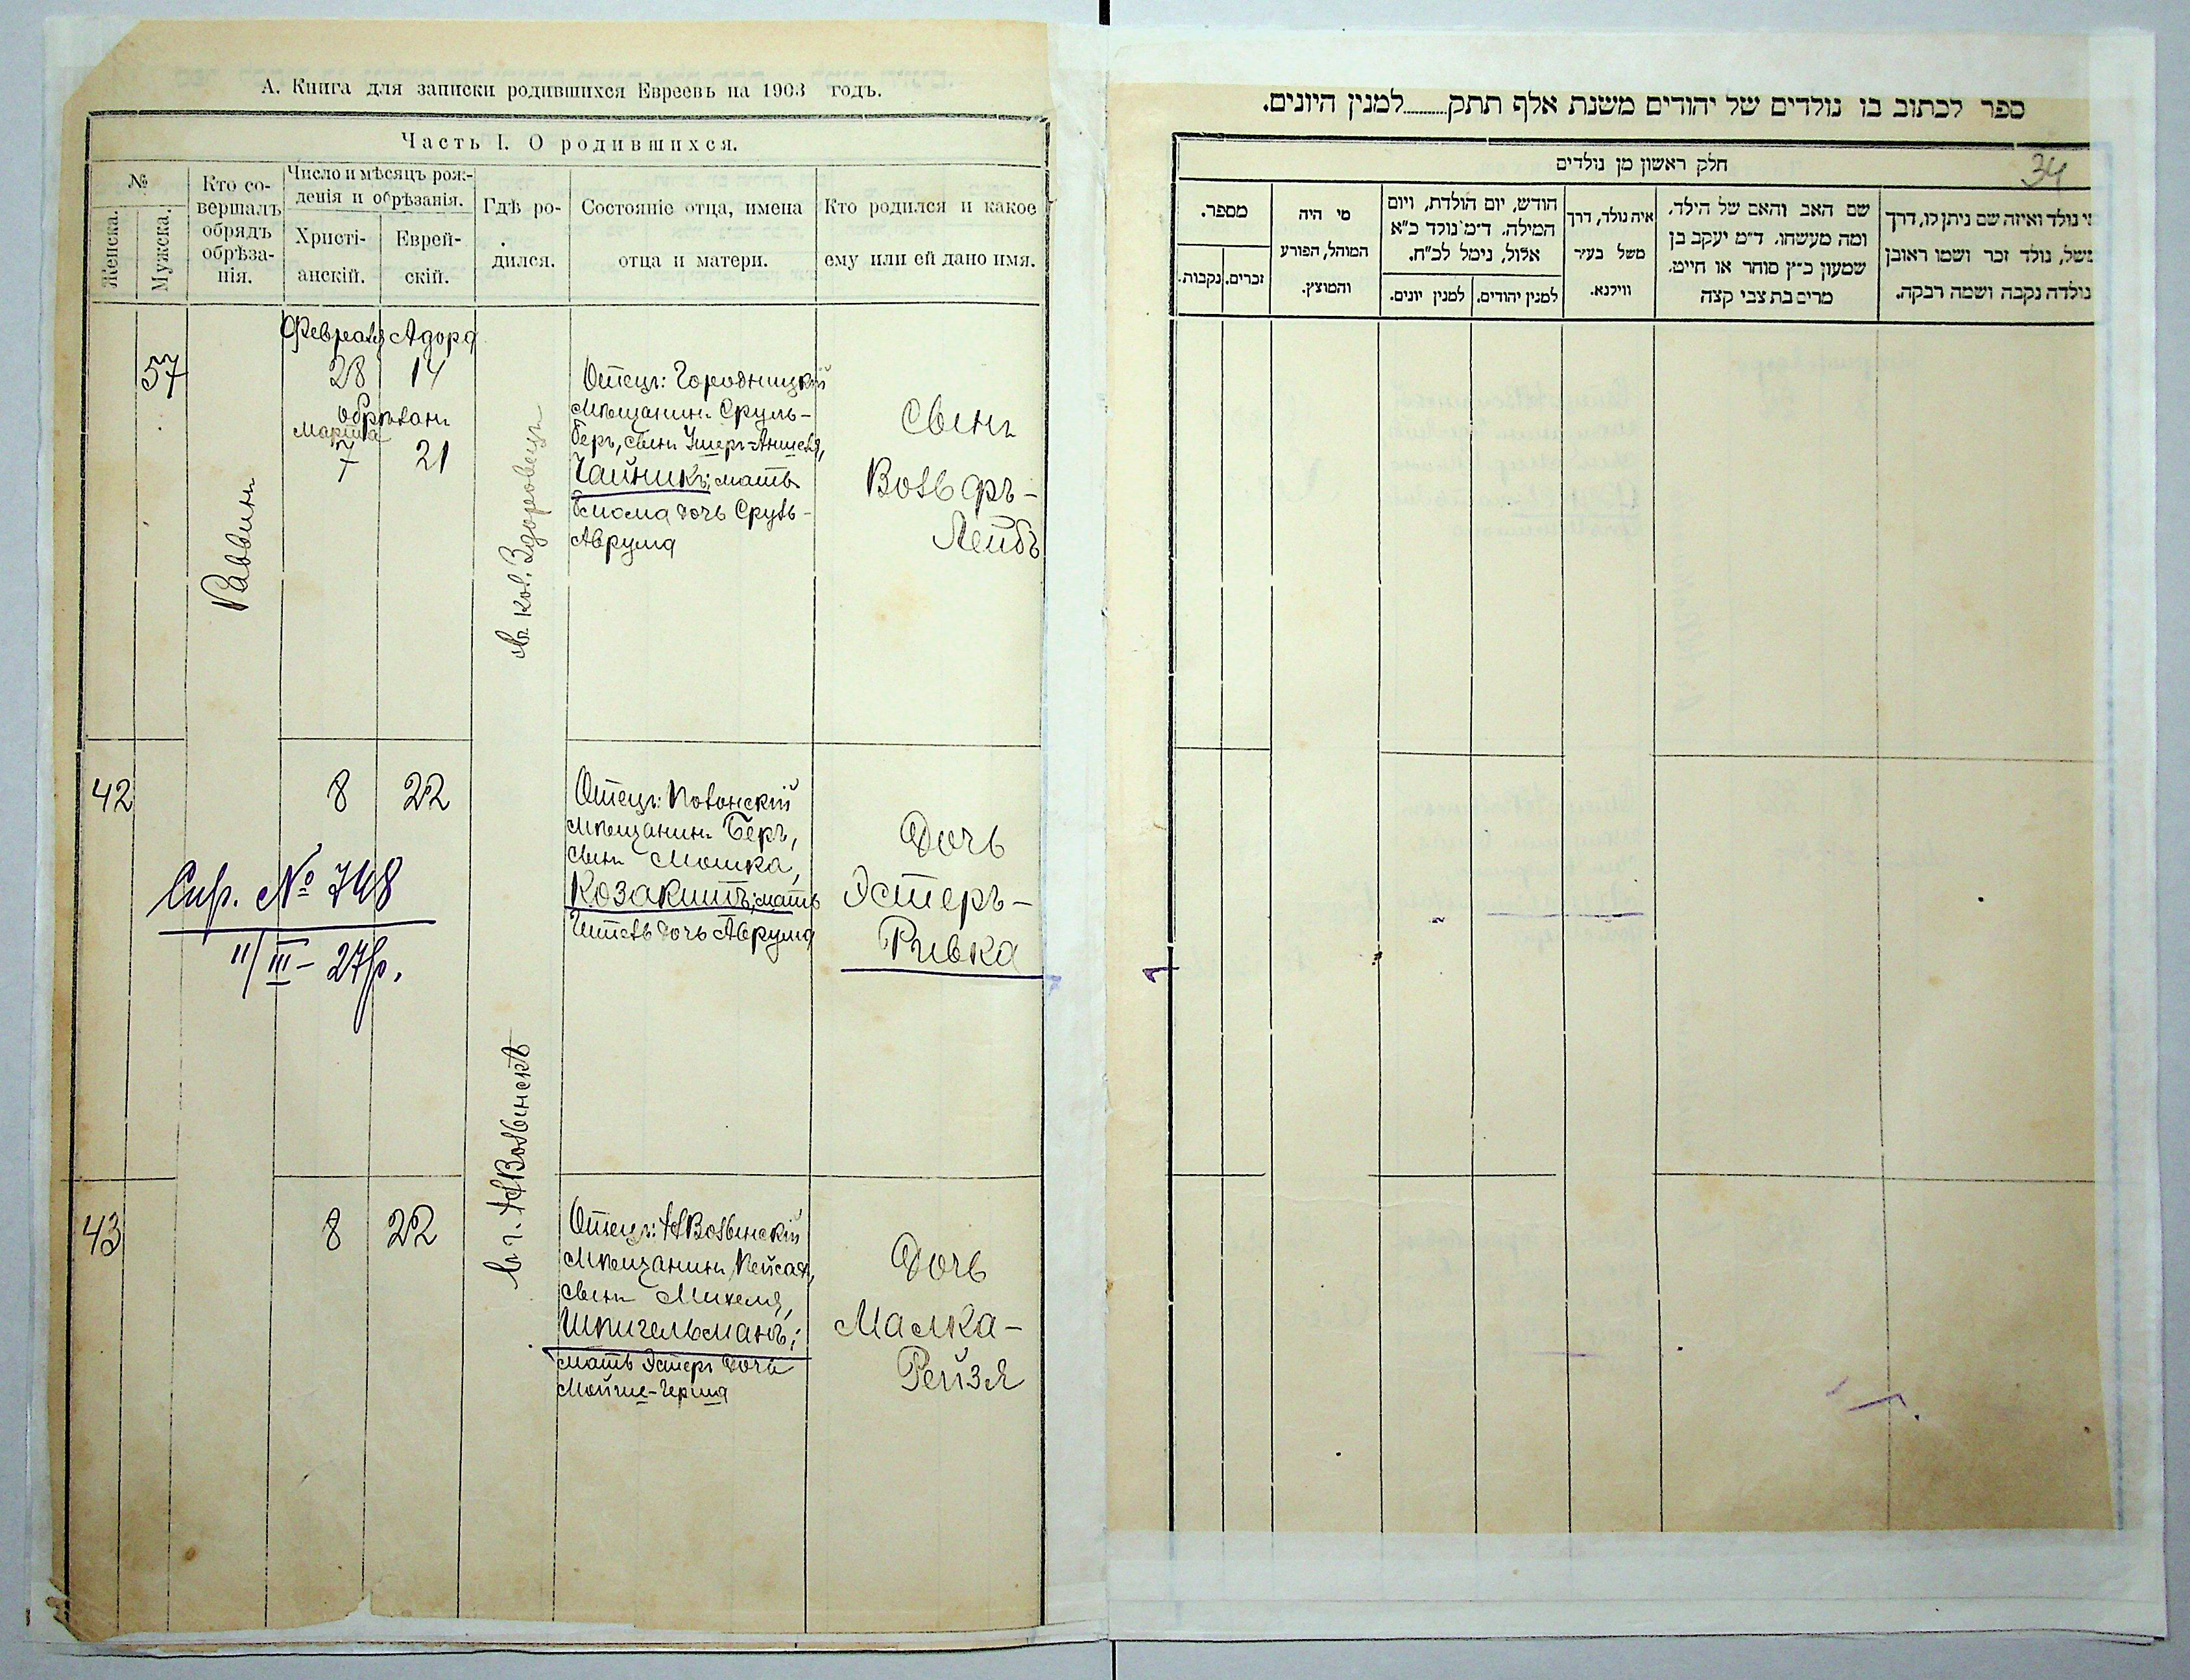 А. Книга для записки родившихся Евреевъ на 1903 годъ.
Часть I. О родившихся.
№
Женска.
Мужска.
Кто со-
вершалъ
обрядъ
обрѣза-
нія.
Число и мѣсяцъ рож-
денія и обрѣзанія.
Христі-
анскій.
Еврей-
скій.
Гдѣ ро-
дился.
Состояніе отца, имена
отца и матери.
Кто родился и какое
ему или ей дано имя.
57
Раввинъ
Февраля Адора
28 14
обрѣзанъ
Марта
7 21
въ кол. Здоровецъ
Отецъ: Городницкій
мѣщанинъ Сруль-
Беръ, сынъ Ушеръ-Аншеля,
Чайникъ; мать
дочь Сруль-
Аврума
Сынъ
Вольфъ-
Лейбъ
42
8 22
Спр. № 748
11/III-27р.
Отецъ: Полонскій
мѣщанинъ Беръ,
сынъ Мошка,
Козакитъ; мать
дочь Аврума
Дочь
Эстеръ-
Ривка
43
8 22
въ г. НВолынскѣ
Отецъ: НВолынскій
мѣщанинъ Пейсах,
сынъ Михеля,
Шпигельманъ;
мать Эстеръ дочь
Мойше-Герша
Дочь
Малка-
Рейзя
ספר לכתוב בו נולדים של יהודים משנת אלף תתק.........למנין היונים.
34
חלק ראשון מן נולדים
מספר.
זכרים.
נקבות.
מי היה
המוהל, הפורע
והמוצץ.
חודש, יום הולדת, ויום
המילה. ד״מ נולד כ״א
אלול, נימל לכ״ח.
למנין יהודים.
למנין יונים.
איה נולד, דרך
משל בעיר
ווילנא.
שם האב והאם של הילד,
ומה מעשהו. ד״מ יעקב בן
שמעון כ״ץ סוחר או חייט,
מרים בת צבי קצה
מי נולד ואיזה שם ניתן לו, דרך
משל, נולד זכר ושמו ראובן
נולדה נקבה ושמה רבקה.